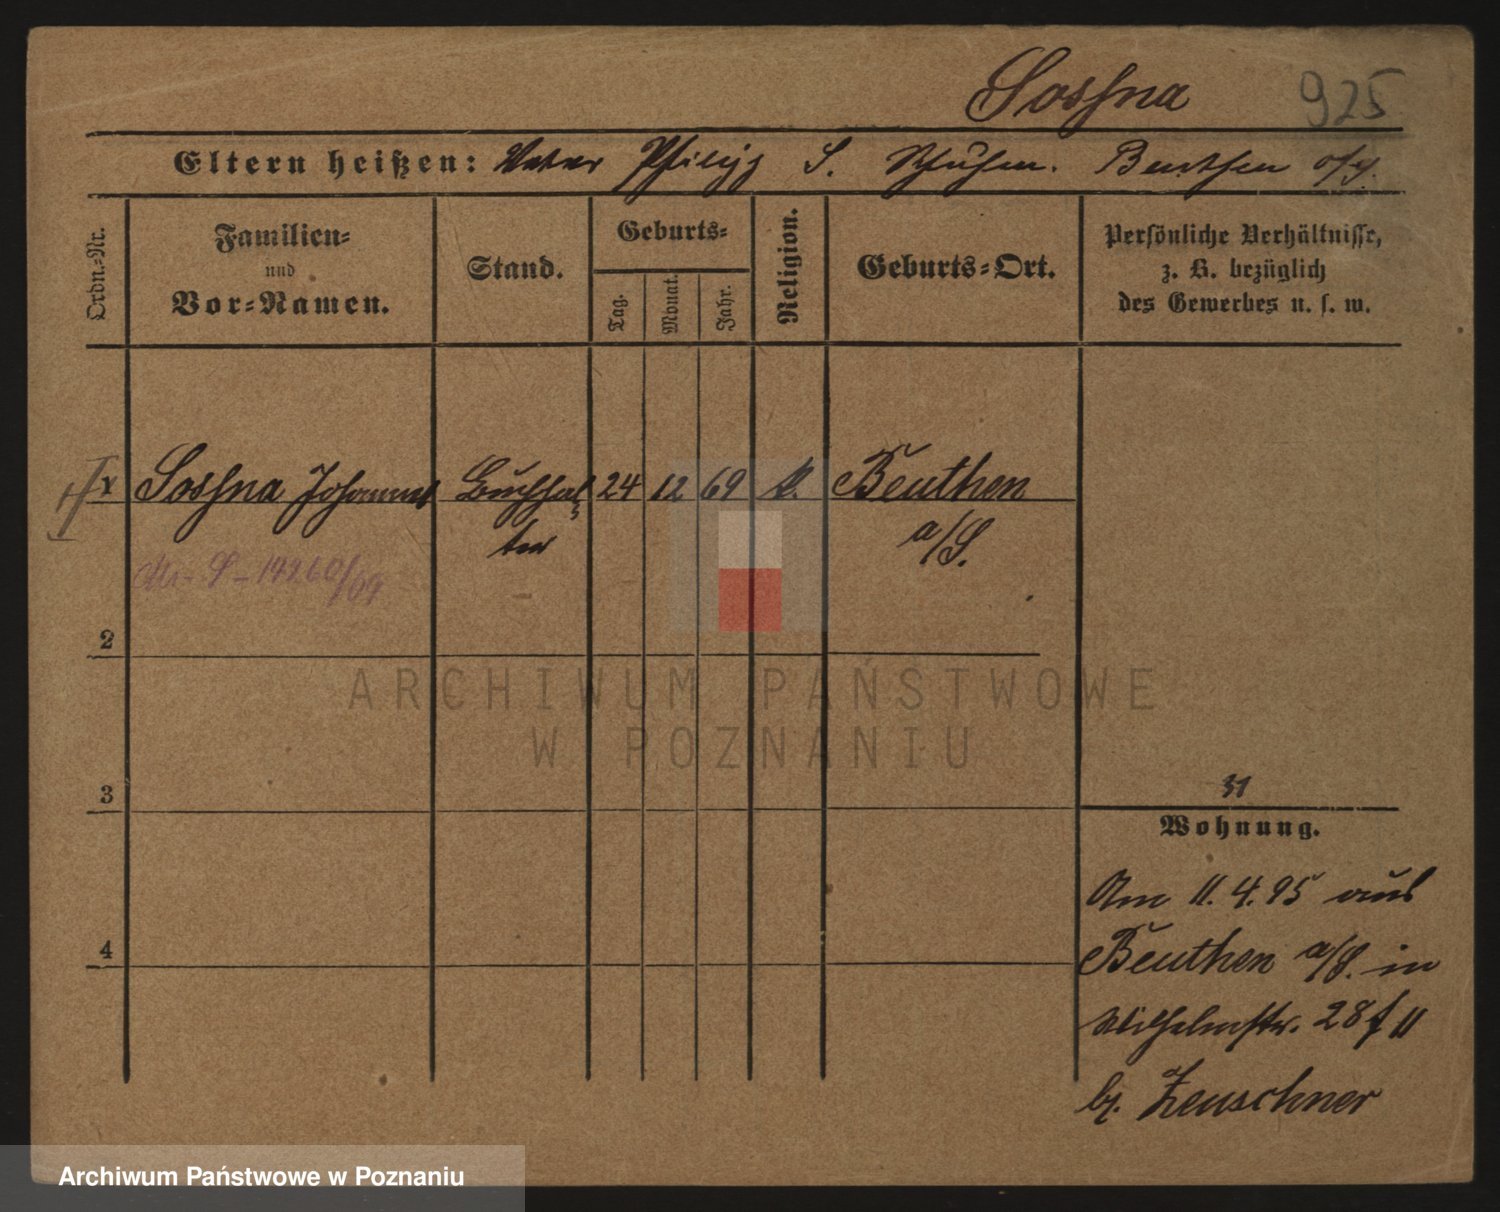 Sossna 925
Eltern heißen: Vater Philipp S. Beuthen o/S.
Ordn.-Nr.
Familien-
und
Vor-Namen.
Stand.
Geburts-
Tag.
Monat.
Jahr.
Religion.
Geburts-Ort.
Persönliche Verhältnisse,
z. B. bezüglich
des Gewerbes u. s. w.
Sossna Johannes Buchhal- 24 12 69 k. Beuthen
ter a/S.
14260/09
2
ARCHIWUM PAŃSTWOWE
W POZNANIU
3
31
Wohnung.
4
Am 11.4.95 aus
Beuthen a/S. in
Wilhelmstr. 28 f II
bz. Zeuschner
Archiwum Państwowe w Poznaniu